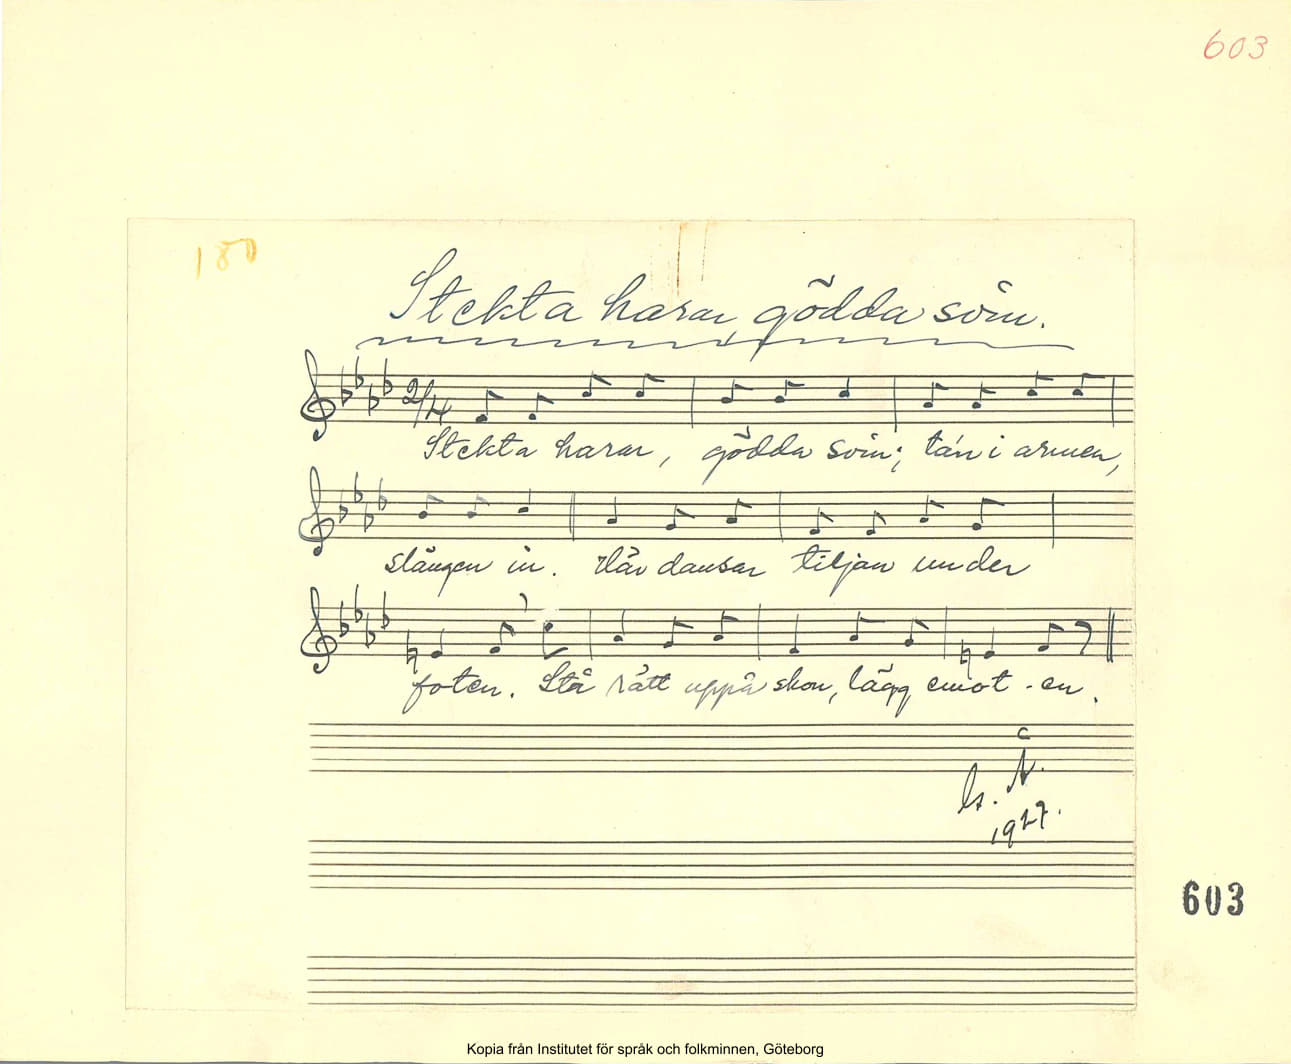 603
180
Stekta harar, gödda svin.
2/4
Stekta harar, gödda svin; ta'n i armen,
slängen in. Där dansar tiljan under
foten. Stå rätt uppå skon, lägg emot - en.
1927.
603
Kopia från Institutet för språk och folkminnen, Göteborg